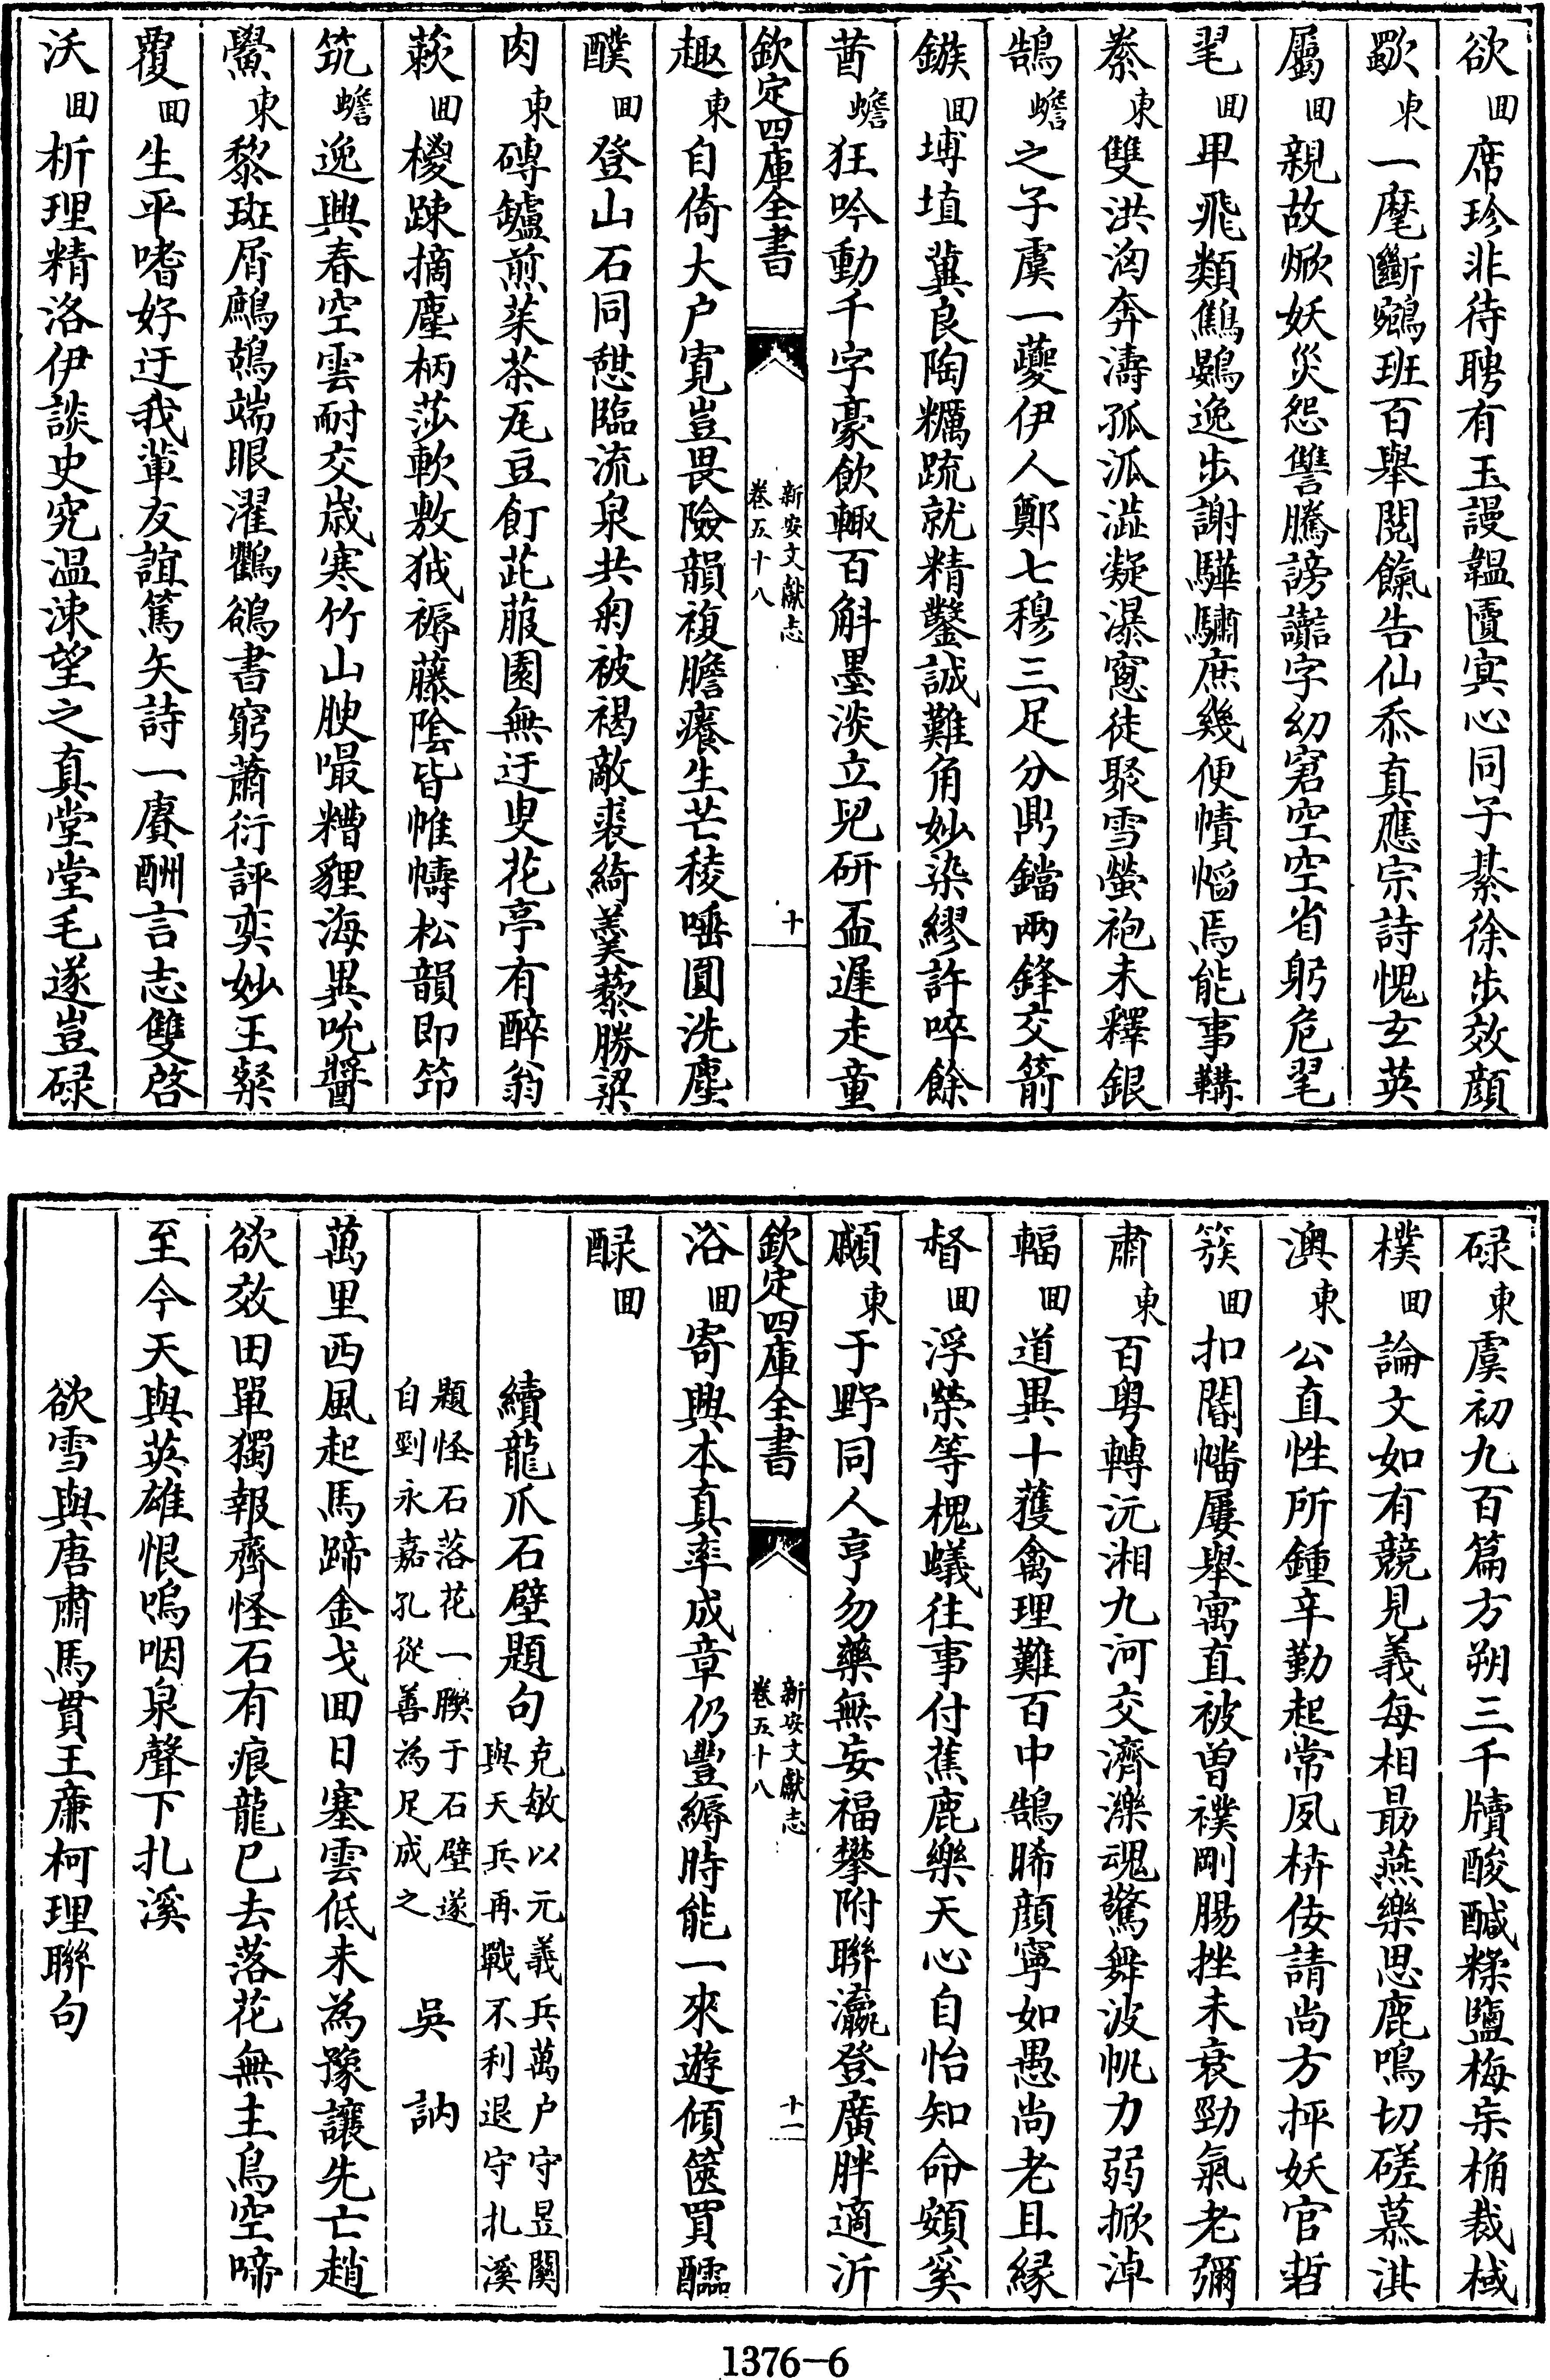 欲回席珍非待聘有玉謾韞匵寘心同子綦徐步效顔
歜東一麾斷鵷班百舉閱餼告仙黍真應宗詩愧玄英
屬回親故焮妖災怨讐騰謗讟字幻窘空空省躬危毣
毣回甲飛類鷦鷃逸步謝驊驌庶幾便憒慆焉能事鞲
絭東雙洪洶奔濤孤泒澁凝瀑窻徒聚雪螢袍未釋銀
鵠蟾之子虞一夔伊人鄭七穆三足分鼎鐺兩鋒交箭
鏃回埤埴冀良陶糲疏就精鑿誠難角妙染繆許啐餘
莤蟾狂吟動千字豪飲輙百斛墨淡立兒研盃遲走童
欽定四庫全書 新安文獻志 卷五十八 十
趣東自倚大户寛豈畏險韻複膽癢生芒稜唾圓洗塵
醭回登山石同憇臨流泉共匊被褐敵裘綺羹藜勝粱
肉東磚鑪煎茱茶瓦豆飣蓏菔園無迂叟花亭有醉翁
蔌回椶踈摘麈柄莎軟敷狘褥藤陰皆帷幬松韻即筇
筑蟾逸興春空雲耐交歳寒竹山腴嘬糟貍海異吮醬
鱟東黎斑屑鷓鴣端眼濯鸜鵒書窮蕭衍評奕妙王粲
覆回生平嗜好迂我軰友誼篤矢詩一賡酬言志雙啓
沃回析理精洛伊談史究温涑望之真堂堂毛遂豈碌
碌東虞初九百篇方朔三千牘酸醎糅鹽梅宋桷裁棫
樸回論文如有競見義每相朂燕樂思鹿鳴切磋慕淇
澳東公直性所鍾辛勤起常夙枿佞請尚方抨妖官硩
簇回扣閽幡屢舉寓直被曽襆剛腸挫未衰勁氣老彌
肅東百粤轉沅湘九河交濟濼魂驚舞波帆力弱掀淖
輻回道異十獲禽理難百中鵠睎顔寧如愚尚老且縁
督回浮榮等槐蟻往事付蕉鹿樂天心自怡知命頞奚
顣東于野同人亨勿藥無妄福攀附聯瀛登廣胖適沂
欽定四庫全書 新安文獻志 卷五十八 十一
浴回寄興本真率成章仍豐縟時能一來遊傾篋買醹
醁回
續龍爪石壁題句 克敏以元義兵萬户守昱關與天兵再戰不利退守扎溪
題怪石落花一聨于石壁遂自剄永嘉孔從善為足成之 吳訥
萬里西風起馬蹄金戈回日塞雲低未為豫讓先亡趙
欲效田單獨報齊怪石有痕龍已去落花無主鳥空啼
至今天與英雄恨嗚咽泉聲下扎溪
欲雪與唐肅馬貫王㢘柯理聨句
1376-6